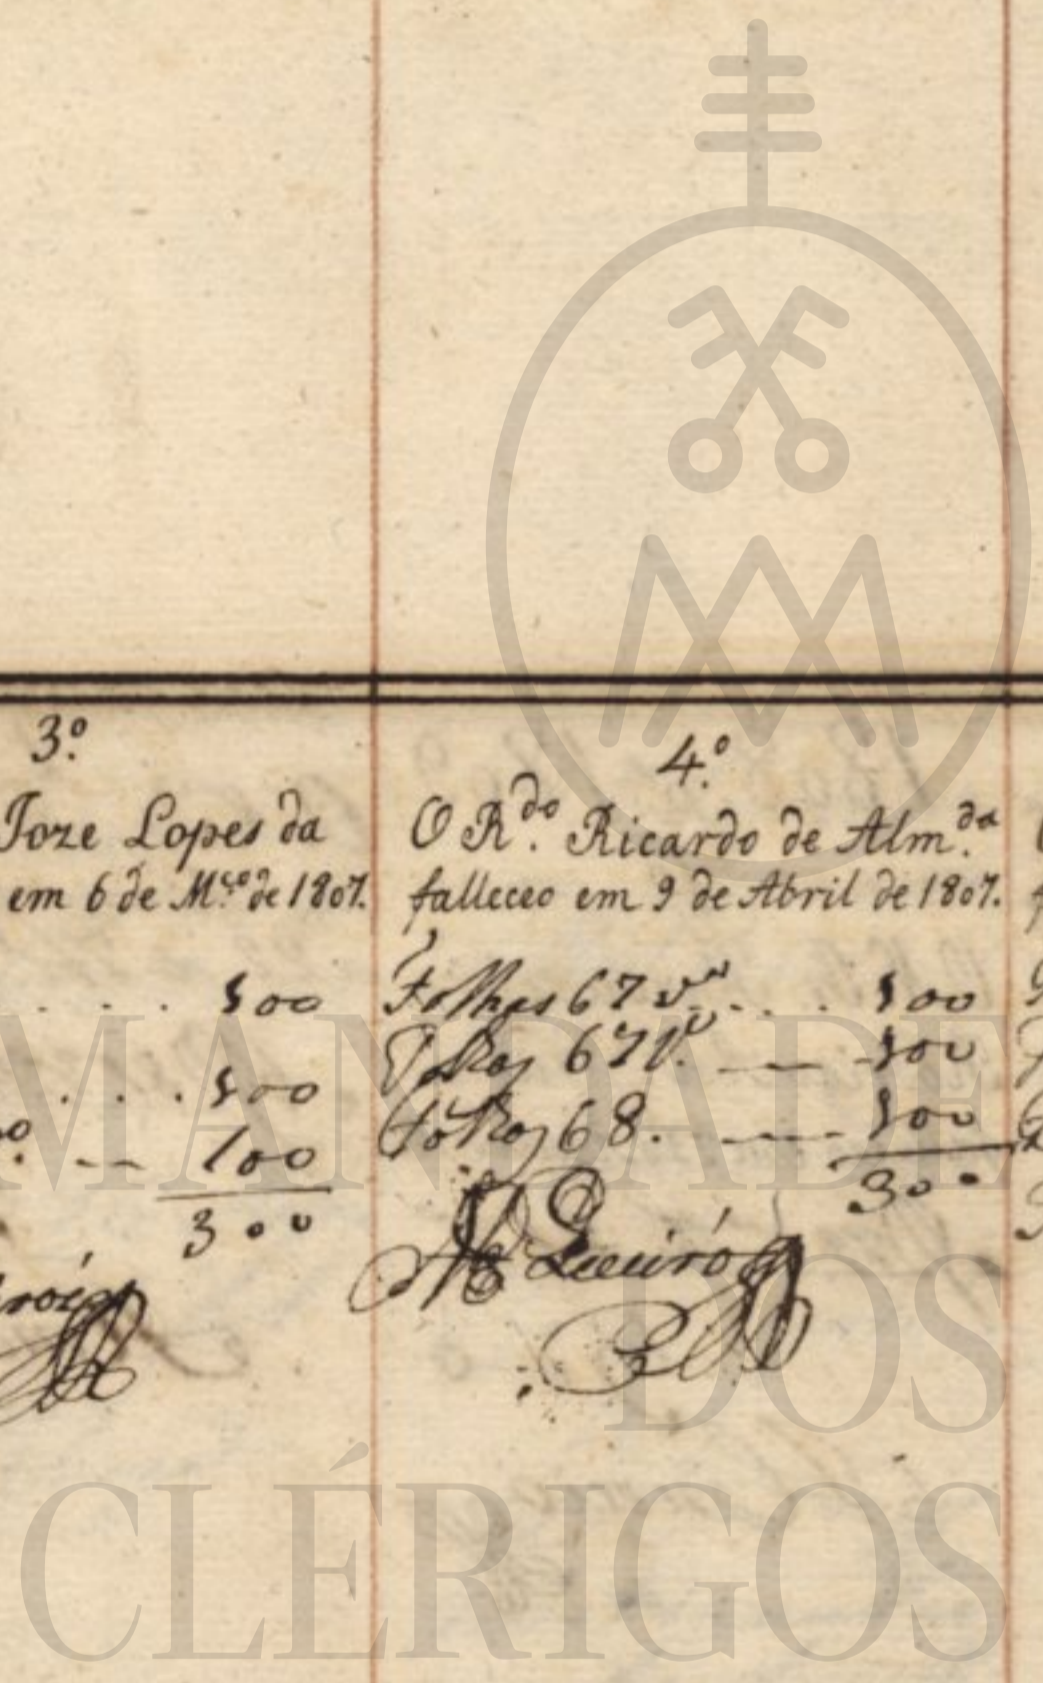 3.º
Joze Lopes da
em 6 de M.ço de 1807.
. . . 100
. . . 100
100
300
4.º
O R.do Ricardo de Alm.da
falleceo em 9 de Abril de 1807.
Folhas 67 v.º . . . 100
Folhas 67 v.º — 100
Folhas 68. — 100
300
Queiróz
MANDADE
DOS
CLÉRIGOS